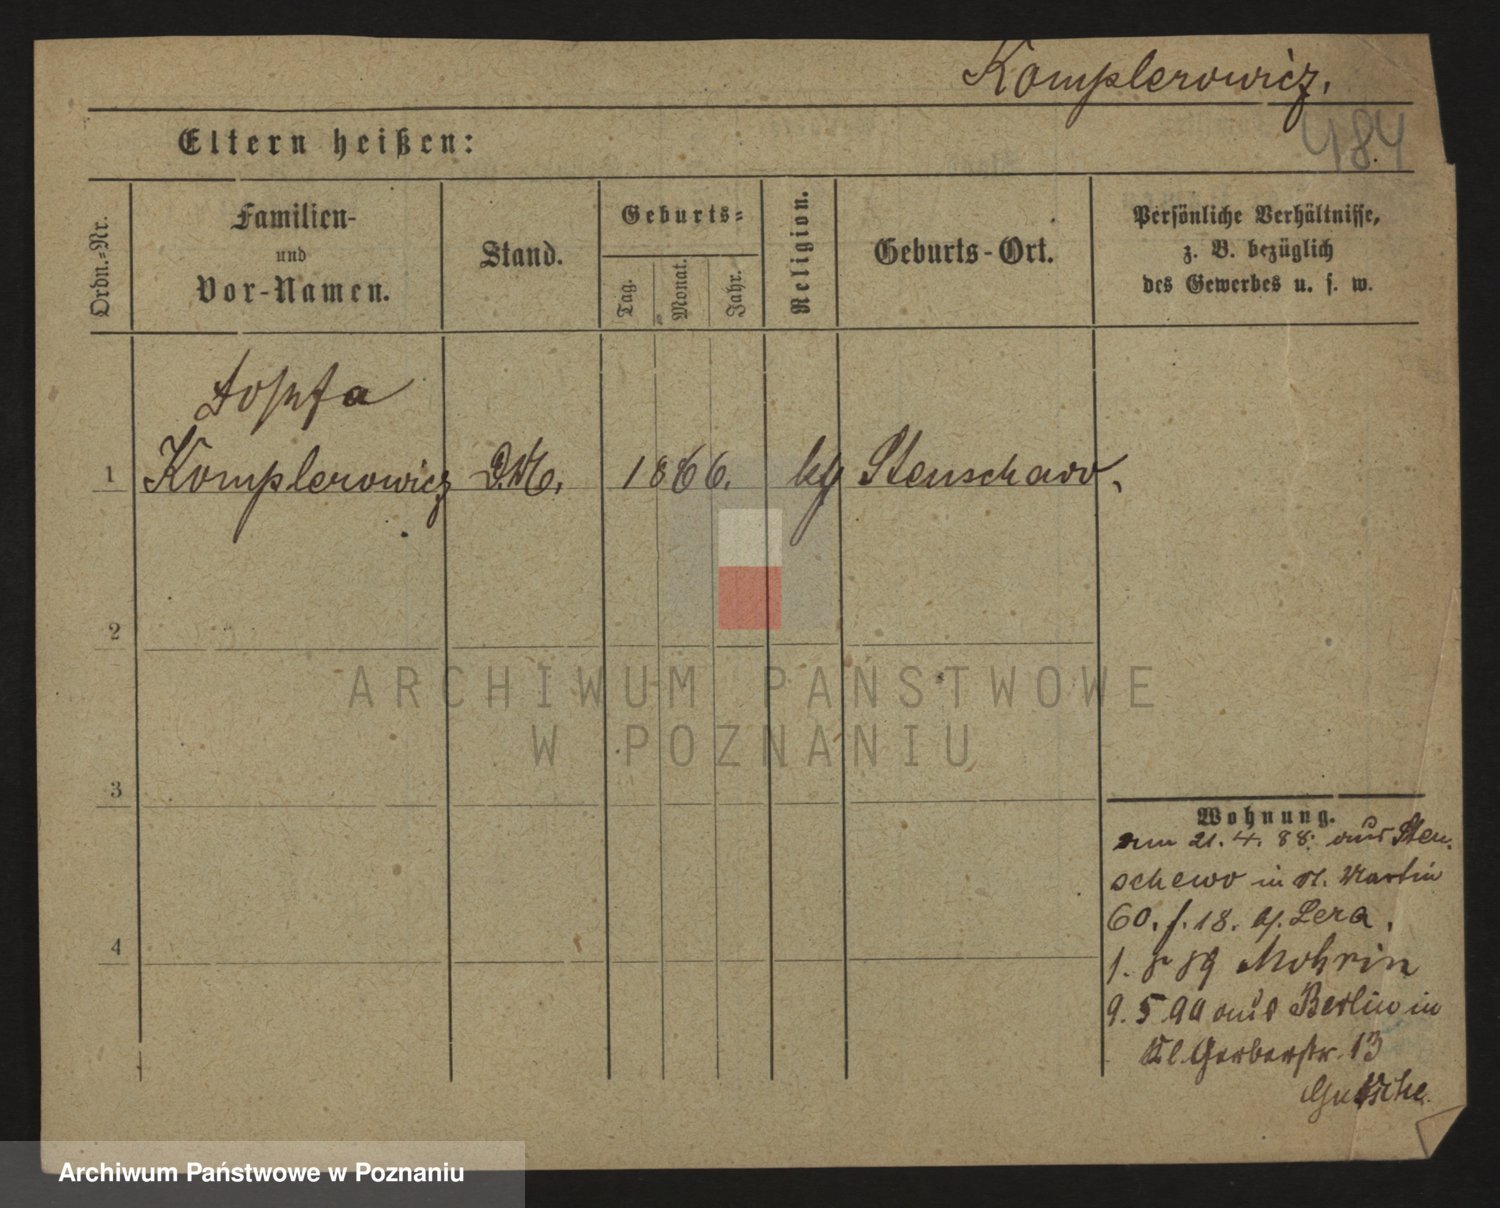 Komplerowicz.
484
Eltern heißen:
Ordn.-Nr.
Familien-
und
Vor-Namen.
Stand.
Geburts-
Tag.
Monat.
Jahr.
Religion.
Geburts-Ort.
Persönliche Verhältnisse,
z. B. bezüglich
des Gewerbes u. s. w.
Josefa
1 Komplerowicz D.M. 1866. kg Stenschewo.
2
3
4
Wohnung.
am 21. 4. 88. aus Sten-
schewo in St. Martin
60. f. 18. b/. Lera.
1. 89 Mohrin
9. 5 90 aus Berlin in
Kl. Gerberstr. 13
Gutsche.
ARCHIWUM PAŃSTWOWE
W POZNANIU
Archiwum Państwowe w Poznaniu